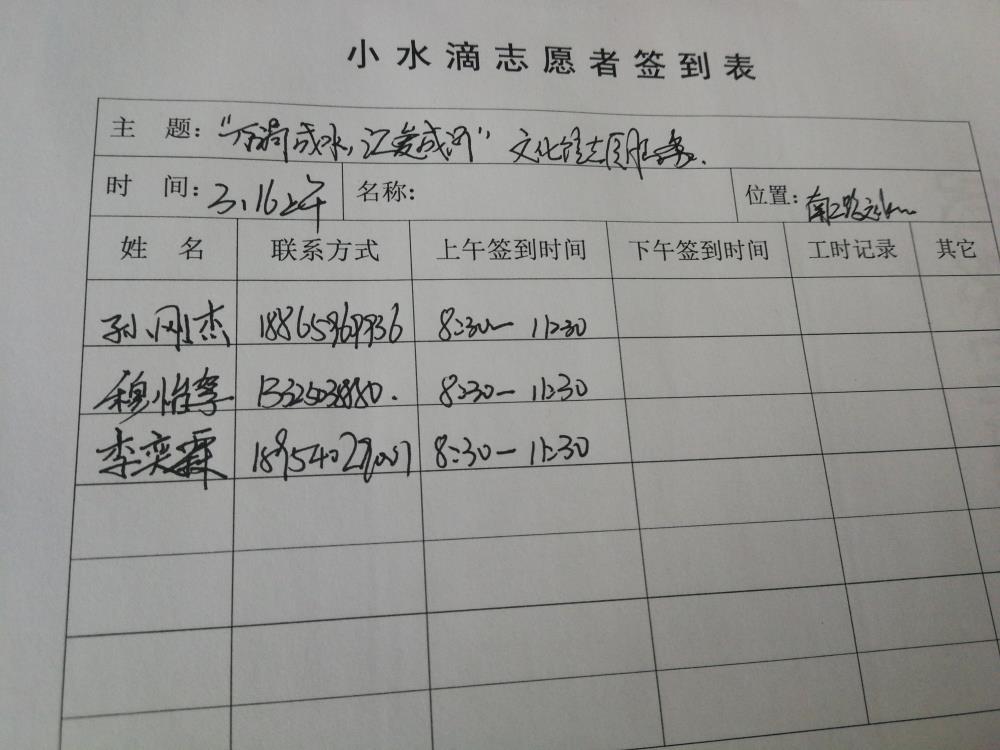 小水滴志愿者签到表
主 题：“万滴成水，汇爱成河” 文化馆志愿服务
时 间：3.16上午 名称： 位置：
姓 名 联系方式 上午签到时间 下午签到时间 工时记录 其它
孙刚杰 18865969936 8:30— 11:30
穆怡 8:30— 11:30
李奕霖 18954027007 8:30— 11:30